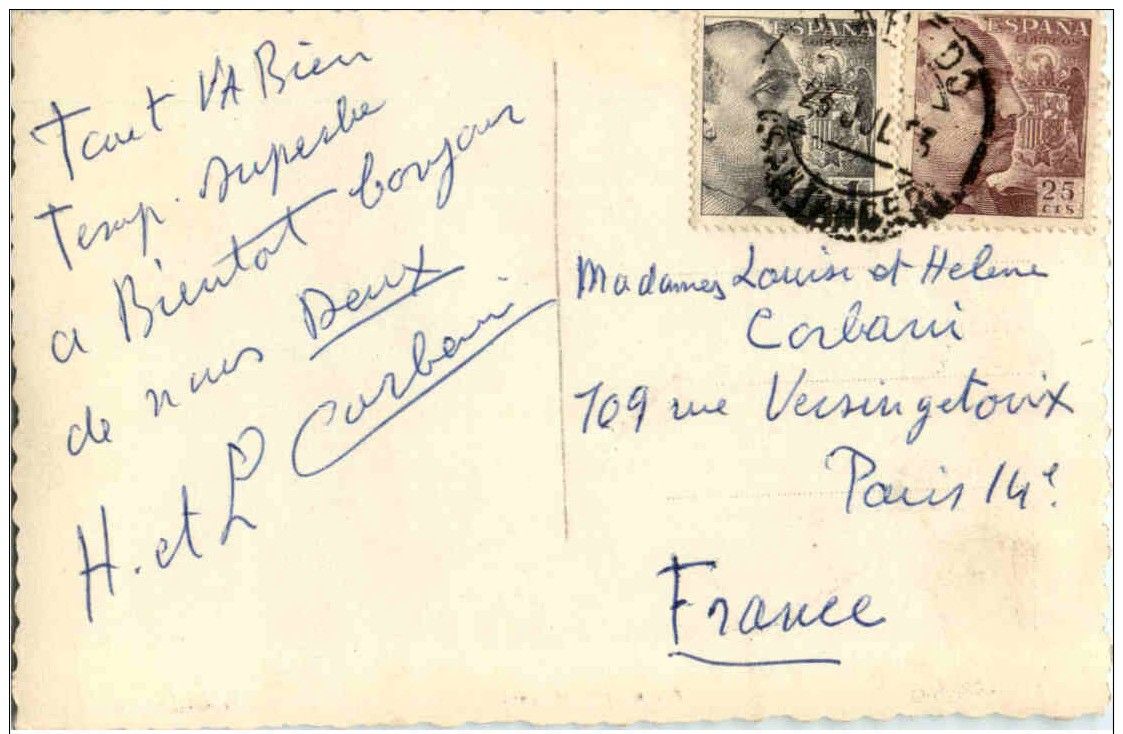 Tout VA Bien
Temp. superbe
a Bientot bonjour
de nous Deux
H. et L Corbani
ESPAÑA
CORREOS
ESPAÑA
CORREOS
25
CTS
25 JUL 53
SANTANDER
Madames Louise et Helene
Corbani
109 rue Versingetorix
Paris 14e.
France